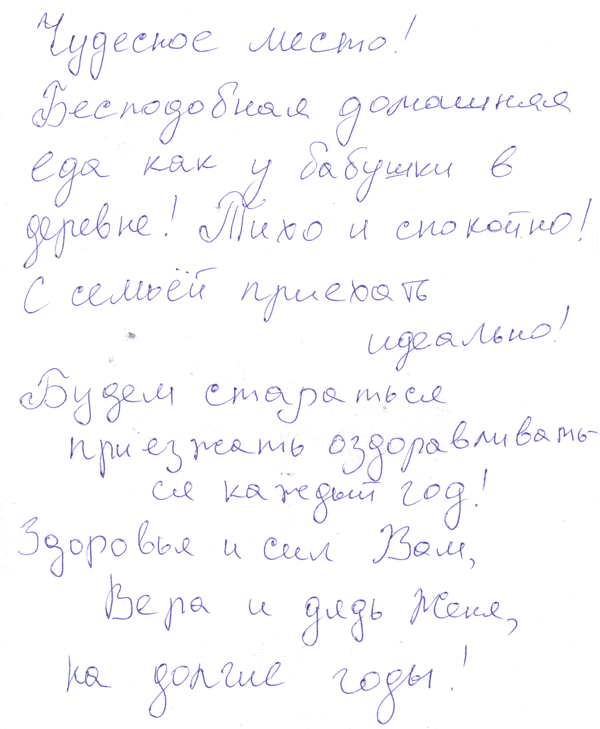 Чудесное место!
Бесподобная домашняя
еда как у бабушки в
деревне! Тихо и спокойно!
С семьёй приехать
идеально!
Будем стараться
приезжать оздоравливать-
ся каждый год!
Здоровья и сил Вам,
Вера и дядь Женя,
на долгие годы!